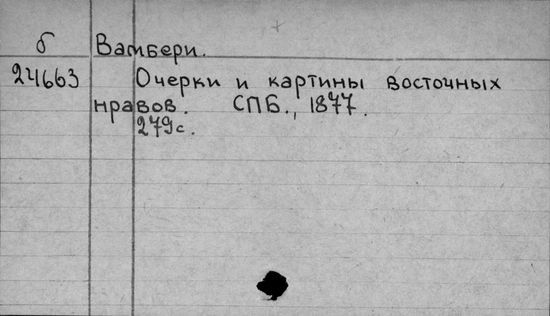 б Вамбери.
24663 Очерки и картины восточных
нравов. СПБ., 1877.
279с.